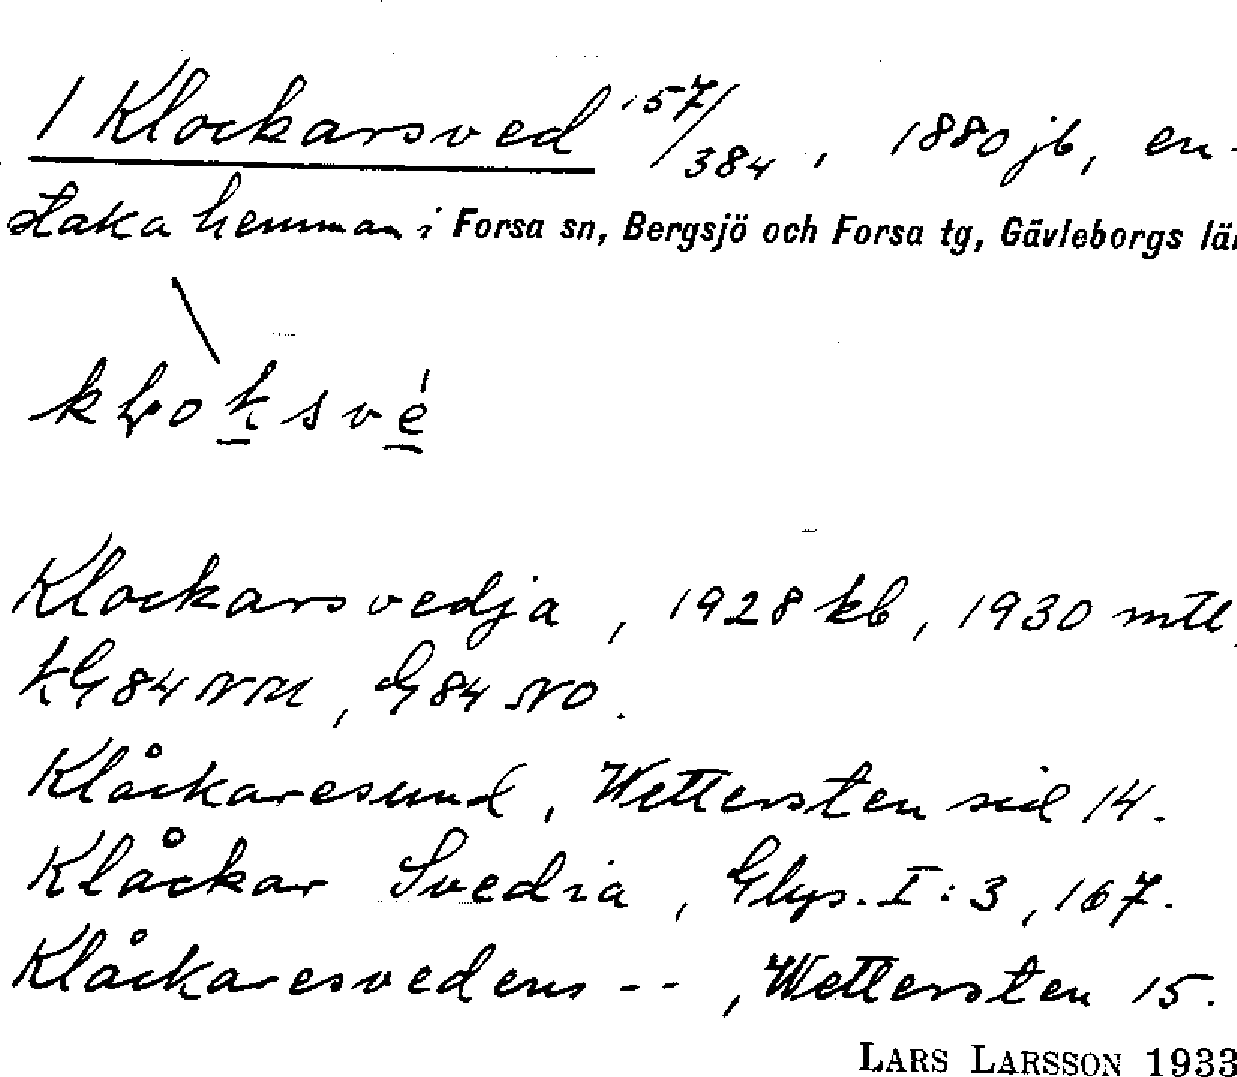 1 Klockarsved 157/384, 1880 jb, en-
staka hemman i Forsa sn, Bergsjö och Forsa tg, Gävleborgs lä

Klockarsvedja, 1928 kb, 1930 mtl,
kG 84 NM, G 84 NO.
Klåckaresund, Wettersten sid 14.
Klåckar Svedia, Glys. I:3, 167.
Klåckaresvedens - - , Wettersten 15.
LARS LARSSON 1933